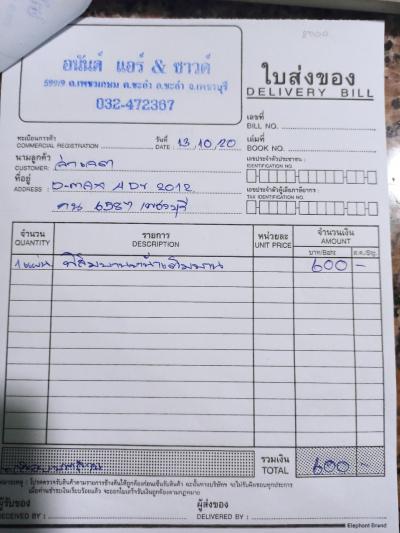 อนันต์ แอร์ & ซาวด์
599/9 ถ.เพชรเกษม ต.ชะอำ อ.ชะอำ จ.เพชรบุรี
032-472367
ใบส่งของ
DELIVERY BILL
เลขที่
BILL NO.
ทะเบียนการค้า
COMMERCIAL REGISTRATION
วันที่
DATE 13/10/20
เล่มที่
BOOK NO.
นามลูกค้า
CUSTOMER:
เลขประจำตัวประชาชน :
IDENTIFICATION NO.
ที่อยู่
ADDRESS : D-MAX 4Dr 2012
เลขประจำตัวผู้เสียภาษีอากร :
TAX IDENTIFICATION NO.
6587 เพชรบุรี
จำนวน
QUANTITY
รายการ
DESCRIPTION
หน่วยละ
UNIT PRICE
จำนวนเงิน
AMOUNT
บาท/Baht
ส.ต./Stg.
1 แผ่น ฟิล์มบานหน้าเต็มบาน 600 -
รวมเงิน
TOTAL 600 -
หมายเหตุ : โปรดตรวจรับสินค้าตามรายการข้างต้นให้ถูกต้องก่อนเซ็นรับสินค้า
ผู้รับของ
RECEIVED BY :
ผู้ส่งของ
DELIVERED BY :
Elephant Brand